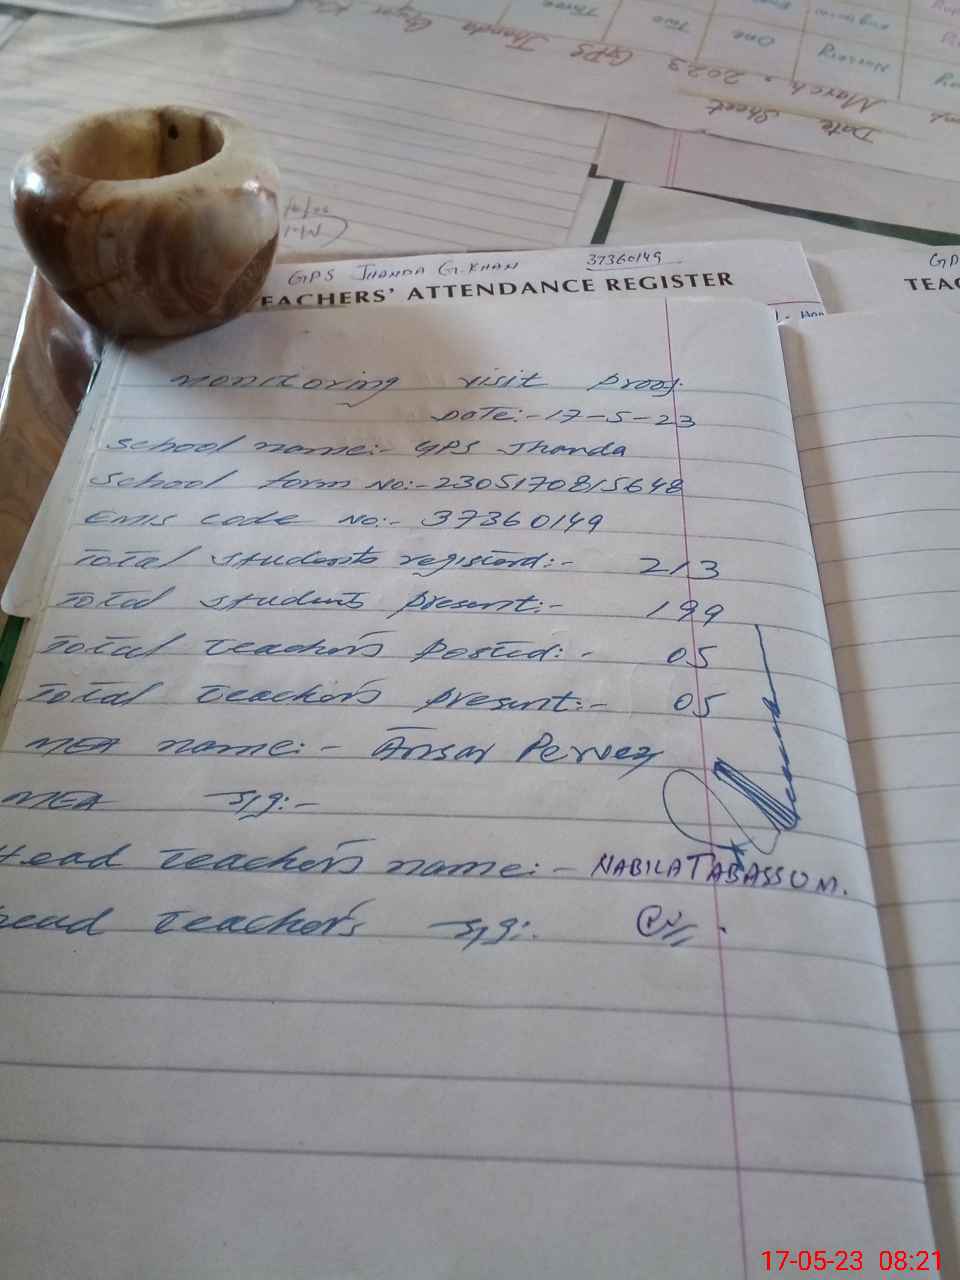 Date Sheet
March, 2023 GPS Jhanda
Nursery One Two Three
GPS JHANDA G. KHAN 37360149
TEACHERS' ATTENDANCE REGISTER
GP
TEAC
monitoring visit proof
DATE:-17-5-23
School name:- GPS Jhanda
School form No:-2305170815648
EMIS code No:- 37360149
Total students registerd:- 213
Total students present:- 199
Total teachers posted:- 05
Total teachers present:- 05
MEA name:- Ansar Pervez
MEA sig:-
Head teacher's name:- NABILA TABASSUM.
Head teacher's sig:.
17-05-23 08:21